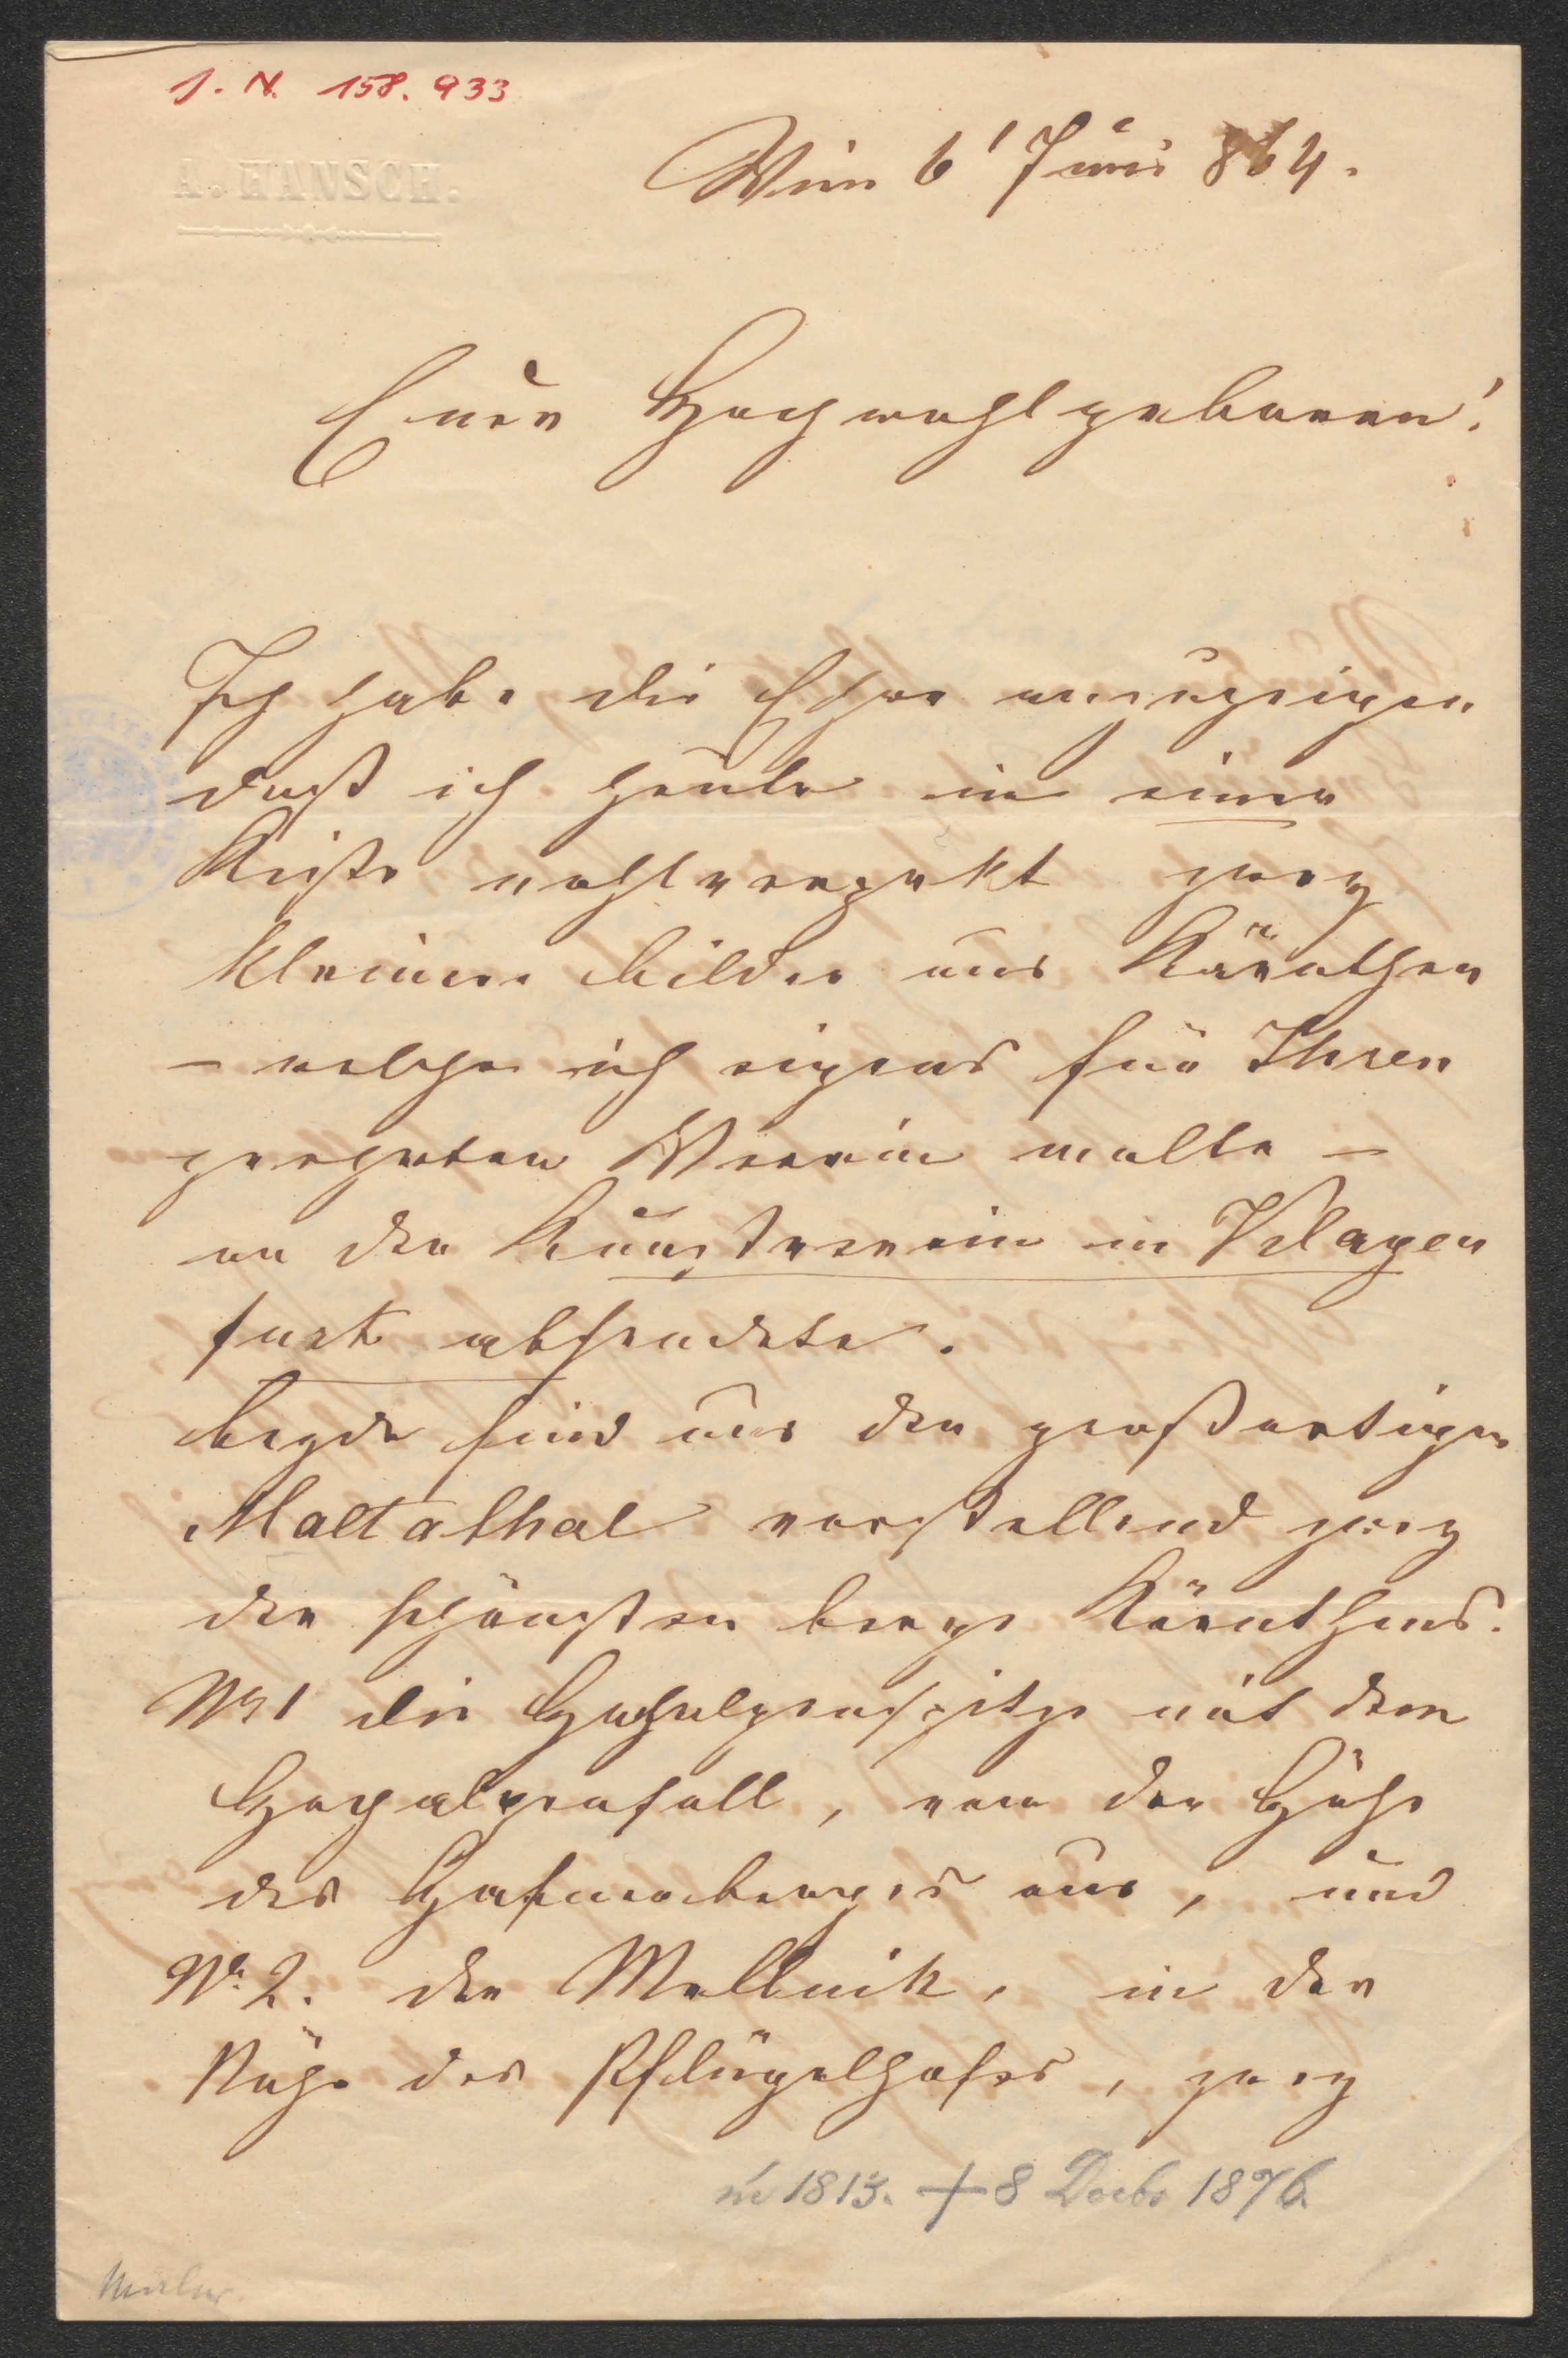 I. N. 158.933
A. HANSCH.
Wien 6t Juni 864.
Euer Hochwohlgeboren!
Ich habe die Ehre anzuzeigen
daß ich heute in einer
Kiste wohlverpakt zwey
kleinere Bilder aus Kärnthen
– welche ich eigends für Ihren
geehrten Verein malte –
an den Kunstverein in Klagen
furt absendete.
Beyde sind aus den großartigen
Maltathal vorstellend zwey
der schönsten Berge Kärnthens.
Nr 1 die Hochalpenspitze mit dem
Hochalpenfall, von der Höhe
des Hafnerberges aus, und
Nr. 2. den Mallnik, in der
Nähe des Pflügelhofes, zwey
1813. + 8 Decbr 1876.
Maler